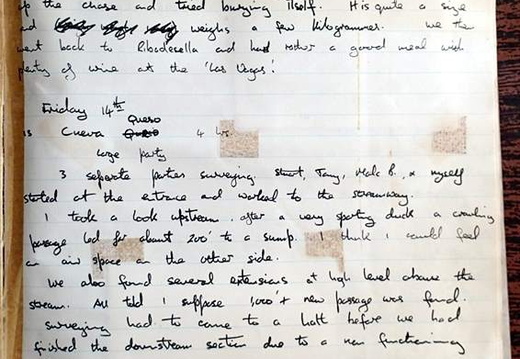 up the chase and tried burying itself. It is quite a size
and weighs a few kilogrammes. We then
went back to Ribadesella and had rather a good meal with
plenty of wine at the 'Las Vegas'.
Friday 14th
Queso
Cueva 4 hrs.
large party
3 separate parties surveying. Stuart, Tony, Malc B. & myself
started at the entrance and worked to the streamway.
I took a look upstream, after a very sporting duck a crawling
passage led for about 200' to a sump. I think I could feel
an air space on the other side.
We also found several extensions at high level above the
stream. All told I suppose 1,000'+ new passage was found.
Surveying had to come to a halt before we had
finished the downstream section due to a non functioning